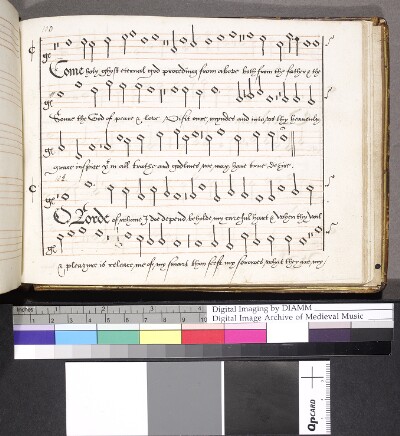 Come holy ghost eternal god proceding from above both from the father & the
Sonne the God of peace & love Visit our myndes and into us thy heavenly
grace inspire yt in all truthe and godlines we may have true desire.
O Lorde of whome I doe depend beholde my carefull hart & when thy will
& pleasure is release me of my smart thou seest my sorowes what they are, my
inches 1 2 3 4
Digital Imaging by DIAMM
Digital Image Archive of Medieval Music
QPCARD